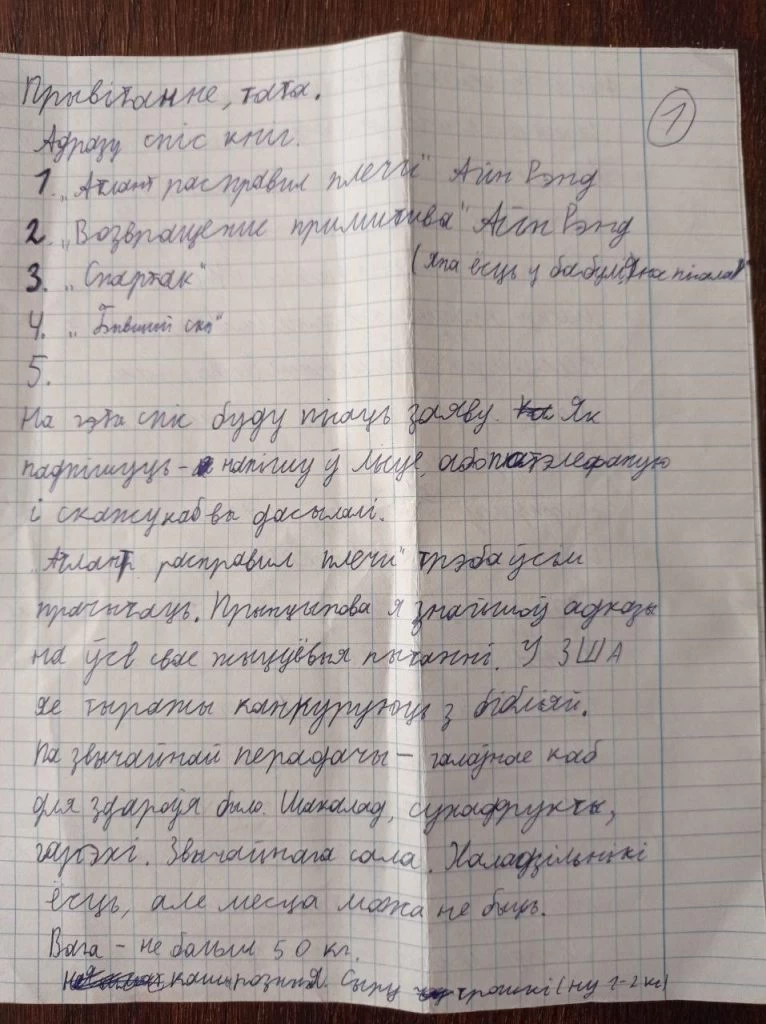 Прывітанне, тата.
1
Адразу спіс кніг.
1. „Атлант расправил плечи" Айн Рэнд
2. „Возвращение примитива" Айн Рэнд
3. „Спартак"
(яна ёсць у бабулі, яна пісала)
4. „Бывший
5.
На гэта спіс буду пісаць заяву. Як
падпішуць - напішу ў лісце, або патэлефаную
і скажу каб вы дасылалі.
„Атлант расправил плечи" трэба ўсім
прачытаць. Прынцыпова я знайшоў адказы
на ўсе свае жыццёвыя пытанні. У ЗША
яе тыражы канкуруюць з бібліяй.
Па звычайнай перадачы — галаўнае каб
для здароўя было. Шакалад, сухафрукты,
гарэхі. Звычайнага сала. Халадзільнікі
ёсць, але месца можа не быць.
Вага - не больш 50 кг.
кашы розныя. Сыру трошкі (ну 1-2 кг)